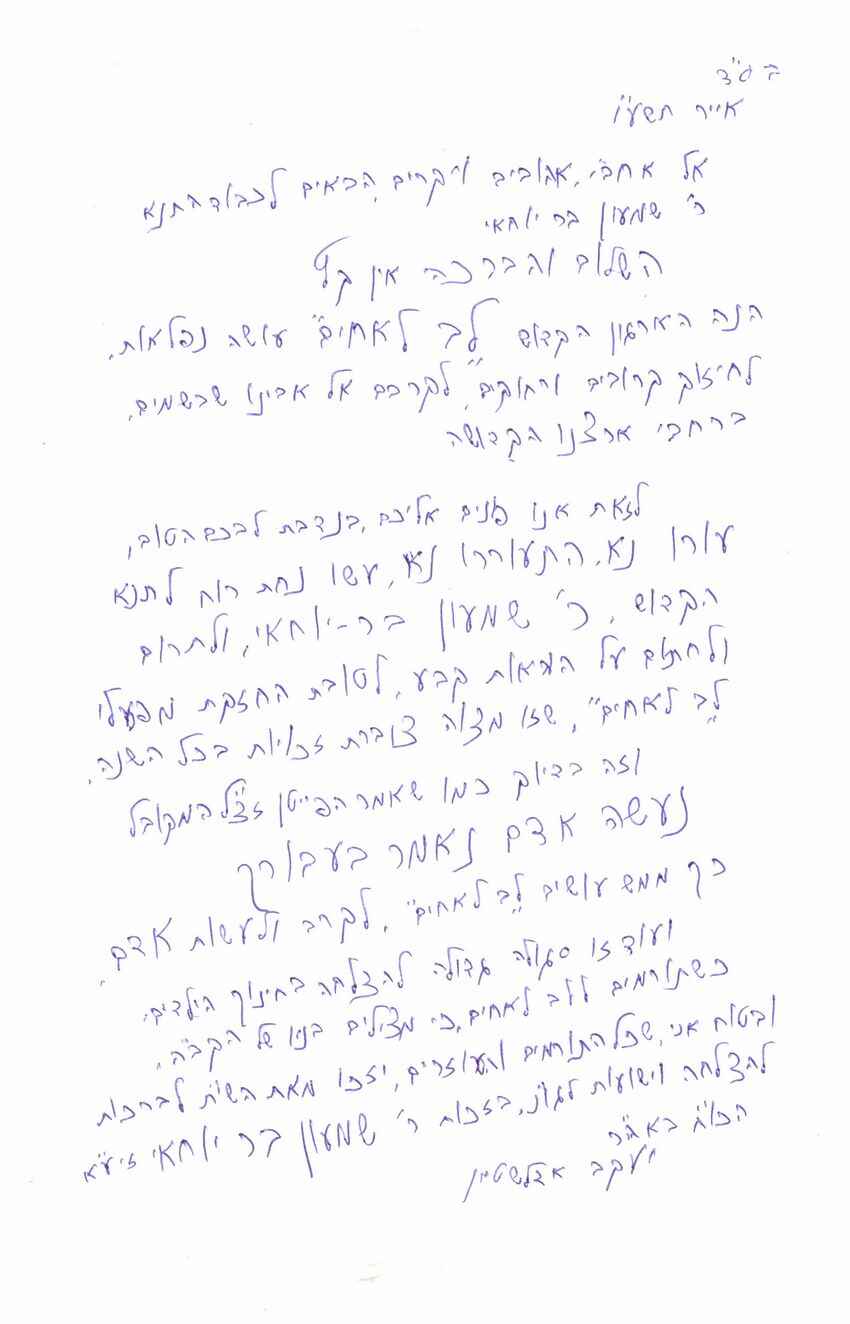 בס"ד
אייר תשע"ו
אל אחבי, אהובים ויקרים, הבאים לכבוד התנא
ר' שמעון בר יוחאי
השלום והברכה אין קץ
הנה הארגון הקדוש "לב לאחים" עושה נפלאות,
לחיזוק קרובים ורחוקים, לקרבם אל אבינו שבשמים,
ברחבי ארצנו הקדושה
לזאת אנו פונים אליכם, בנדבת לבכם הטוב,
עורו נא, התעוררו נא, עשו נחת רוח לתנא
הקדוש, ר' שמעון בר-יוחאי, ולתרום
ולחתום על הוראות קבע, לטובת החזקת מפעלי
"לב לאחים", שזו מצוה צוברת זכויות בכל השנה,
וזה בדיוק כמו שאמר הפייטן זצ"ל המקובל
נעשה אדם נאמר בעבורך
כך ממש עושים "לב לאחים", לקרב ולעשות אדם,
ועוד זו סגולה גדולה להצלחה בחינוך הילדים,
כשתורמים ללב לאחים, כי מצילים בניו של הקב"ה,
ובטוח אני, שכל התורמים והעוזרים, יזכו מאת השי"ת לברכות
להצלחה וישועות לגו"נ, בזכות ר' שמעון בר יוחאי זיע"א
הכו"ח באה"ר
יעקב אדלשטיין